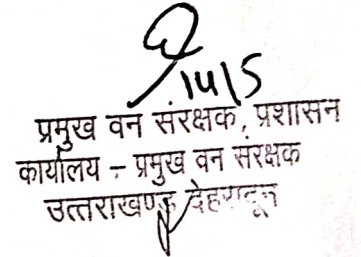 14/5
प्रमुख वन संरक्षक, प्रशासन
कार्यालय - प्रमुख वन संरक्षक
उत्तराखण्ड देहरादून